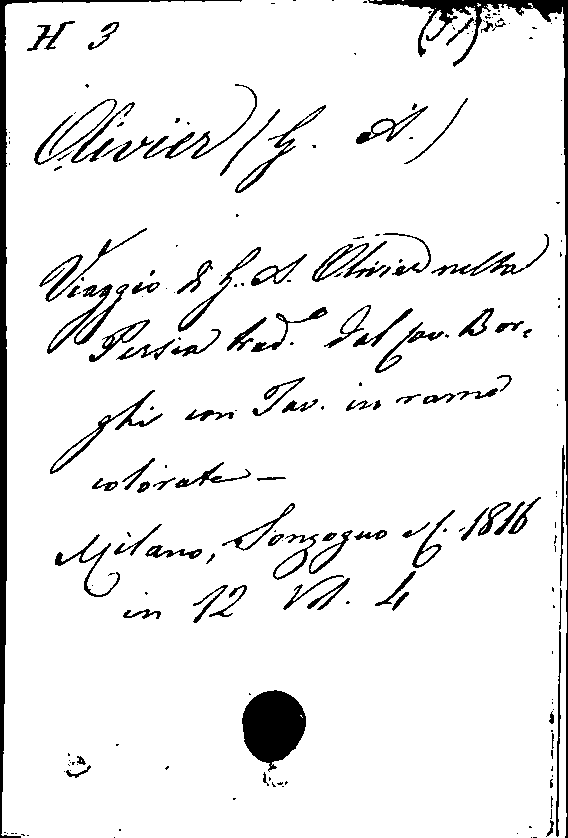 H 3
Olivier (G. A.)
Viaggio di G. A. Olivier nella
Persia trad.º dal Cav. Bor-
ghi con Tav. in rame
colorate —
Milano, Sonzogno e C. 1816
in 12 Vol. 4